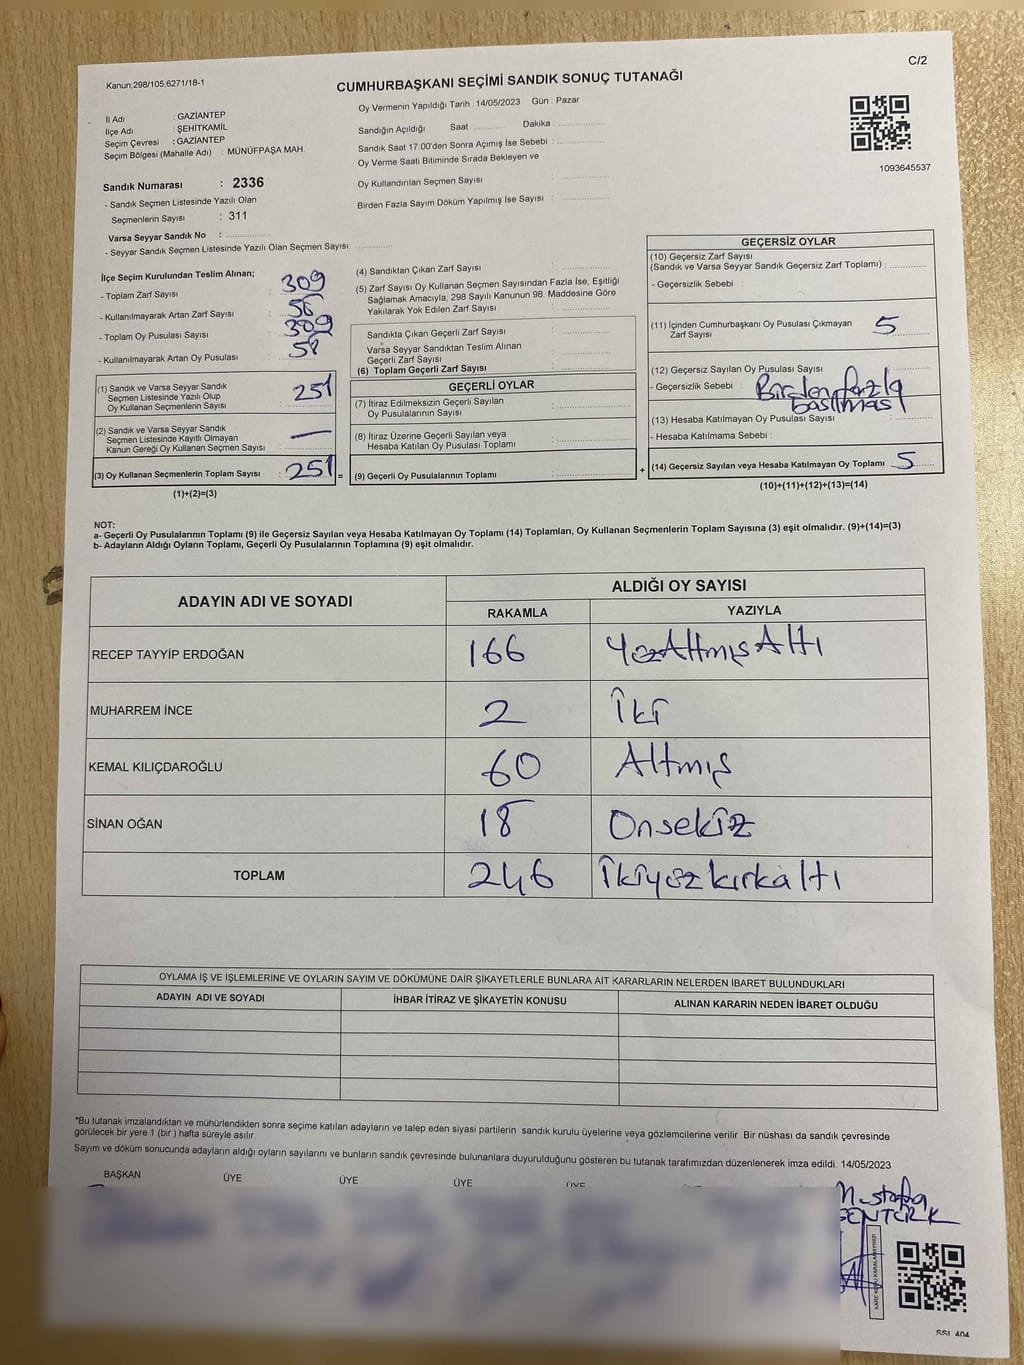 C/2
Kanun:298/105,6271/18-1
CUMHURBAŞKANI SEÇİMİ SANDIK SONUÇ TUTANAĞI
1093645537
İl Adı : GAZİANTEP
İlçe Adı : ŞEHİTKAMİL
Seçim Çevresi : GAZİANTEP
Seçim Bölgesi (Mahalle Adı) : MÜNÜFPAŞA MAH.
Sandık Numarası : 2336
- Sandık Seçmen Listesinde Yazılı Olan
Seçmenlerin Sayısı : 311
Varsa Seyyar Sandık No :
- Seyyar Sandık Seçmen Listesinde Yazılı Olan Seçmen Sayısı:
Oy Vermenin Yapıldığı Tarih : 14/05/2023 Gün : Pazar
Sandığın Açıldığı Saat Dakika :
Sandık Saat 17:00'den Sonra Açımış İse Sebebi :
Oy Verme Saati Bitiminde Sırada Bekleyen ve
Oy Kullandırılan Seçmen Sayısı :
Birden Fazla Sayım Döküm Yapılmış İse Sayısı :
İlçe Seçim Kurulundan Teslim Alınan;
- Toplam Zarf Sayısı : 309
- Kullanılmayarak Artan Zarf Sayısı : 56
- Toplam Oy Pusulası Sayısı : 309
- Kullanılmayarak Artan Oy Pusulası : 58
(1) Sandık ve Varsa Seyyar Sandık
Seçmen Listesinde Yazılı Olup
Oy Kullanan Seçmenlerin Sayısı : 251
(2) Sandık ve Varsa Seyyar Sandık
Seçmen Listesinde Kayıtlı Olmayan
Kanun Gereği Oy Kullanan Seçmen Sayısı : —
(3) Oy Kullanan Seçmenlerin Toplam Sayısı : 251 =
(1)+(2)=(3)
(4) Sandıktan Çıkan Zarf Sayısı :
(5) Zarf Sayısı Oy Kullanan Seçmen Sayısından Fazla İse, Eşitliği
Sağlamak Amacıyla; 298 Sayılı Kanunun 98. Maddesine Göre
Yakılarak Yok Edilen Zarf Sayısı :
Sandıkta Çıkan Geçerli Zarf Sayısı :
Varsa Seyyar Sandıktan Teslim Alınan
Geçerli Zarf Sayısı :
(6) Toplam Geçerli Zarf Sayısı :
GEÇERLİ OYLAR
(7) İtiraz Edilmeksizin Geçerli Sayılan
Oy Pusulalarının Sayısı :
(8) İtiraz Üzerine Geçerli Sayılan veya
Hesaba Katılan Oy Pusulası Toplamı :
(9) Geçerli Oy Pusulalarının Toplamı : +
GEÇERSİZ OYLAR
(10) Geçersiz Zarf Sayısı
(Sandık ve Varsa Seyyar Sandık Geçersiz Zarf Toplamı) :
- Geçersizlik Sebebi :
(11) İçinden Cumhurbaşkanı Oy Pusulası Çıkmayan
Zarf Sayısı : 5
(12) Geçersiz Sayılan Oy Pusulası Sayısı :
- Geçersizlik Sebebi : Birden fazla
basılması
(13) Hesaba Katılmayan Oy Pusulası Sayısı :
- Hesaba Katılmama Sebebi :
(14) Geçersiz Sayılan veya Hesaba Katılmayan Oy Toplamı : 5
(10)+(11)+(12)+(13)=(14)
NOT:
a- Geçerli Oy Pusulalarının Toplamı (9) ile Geçersiz Sayılan veya Hesaba Katılmayan Oy Toplamı (14) Toplamları, Oy Kullanan Seçmenlerin Toplam Sayısına (3) eşit olmalıdır. (9)+(14)=(3)
b- Adayların Aldığı Oyların Toplamı, Geçerli Oy Pusulalarının Toplamına (9) eşit olmalıdır.
ADAYIN ADI VE SOYADI
ALDIĞI OY SAYISI
RAKAMLA YAZIYLA
RECEP TAYYİP ERDOĞAN 166 YüzAltmışAltı
MUHARREM İNCE 2 İki
KEMAL KILIÇDAROĞLU 60 Altmış
SİNAN OĞAN 18 Onsekiz
TOPLAM 246 İkiyüzkırkaltı
OYLAMA İŞ VE İŞLEMLERİNE VE OYLARIN SAYIM VE DÖKÜMÜNE DAİR ŞİKAYETLERLE BUNLARA AİT KARARLARIN NELERDEN İBARET BULUNDUKLARI
ADAYIN ADI VE SOYADI İHBAR İTİRAZ VE ŞİKAYETİN KONUSU ALINAN KARARIN NEDEN İBARET OLDUĞU
*Bu tutanak imzalandıktan ve mühürlendikten sonra seçime katılan adayların ve talep eden siyasi partilerin sandık kurulu üyelerine veya gözlemcilerine verilir. Bir nüshası da sandık çevresinde
görülecek bir yere 1 (bir ) hafta süreyle asılır.
Sayım ve döküm sonucunda adayların aldığı oyların sayılarını ve bunların sandık çevresinde bulunanlara duyurulduğunu gösteren bu tutanak tarafımızdan düzenlenerek imza edildi. 14/05/2023
BAŞKAN ÜYE ÜYE ÜYE ÜYE
Mustafa
ŞENTÜRK